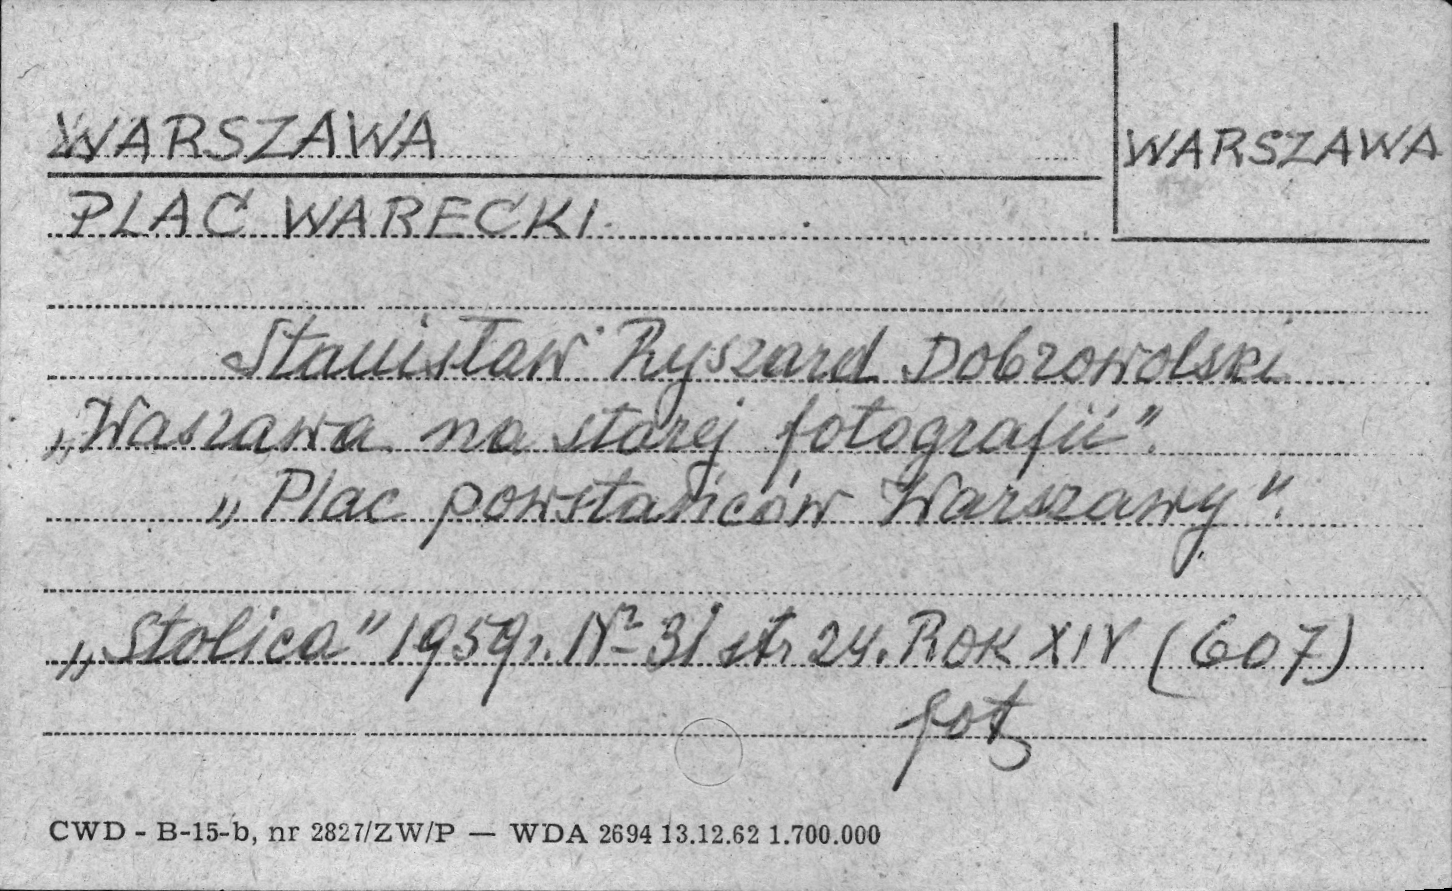 WARSZAWA
WARSZAWA
PLAC WARECKI.
Stanisław Ryszard Dobrowolski
„Waszawa na starej fotografii".
„Plac powstańców Warszawy".
„Stolica" 1959r. Nr 31 str 24. ROK XIV (607)
fot
CWD - B-15-b, nr 2827/ZW/P — WDA 2694 13.12.62 1.700.000